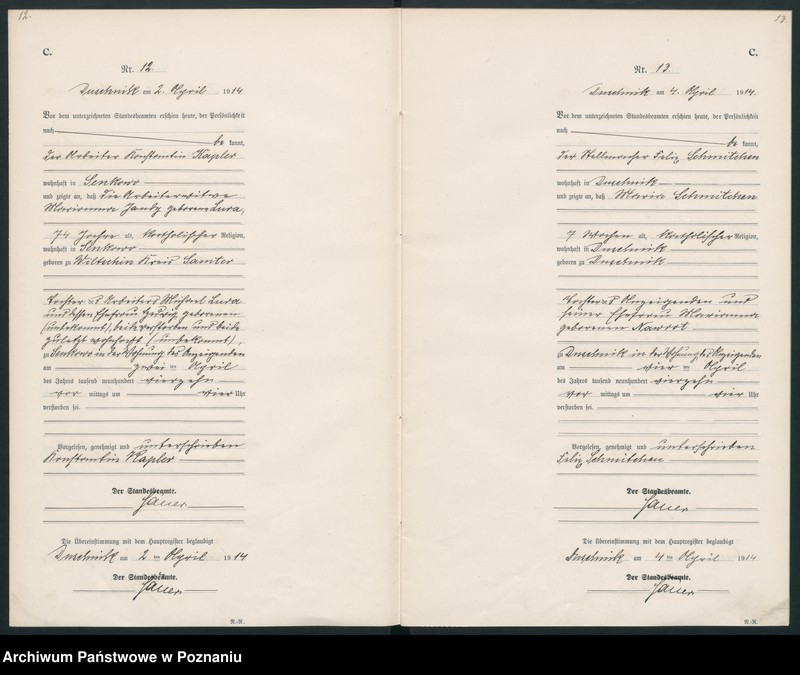 12.
C.
Nr. 12.
Duschnik am 2. April 1914
Vor dem unterzeichneten Standesbeamten erschien heute, der Persönlichkeit
nach
be kannt,
der Arbeiter Konstantin Kapler
wohnhaft in Senkowo
und zeigte an, daß die Arbeiterwitwe
Marianna Jandy geborene Lura,
74 Jahre alt, katholischer Religion,
wohnhaft in Senkowo
geboren zu Wiltschin Kreis Samter
Tochter des Arbeiters Michael Lura
und dessen Ehefrau Hedwig geborenen
(unbekannt), beide verstorben und beide
zuletzt wohnhaft (unbekannt),
zu Senkowo in der Wohnung des Anzeigenden
am zwei ten April
des Jahres tausend neunhundert vierzehn
vor mittags um vier Uhr
verstorben sei.
Vorgelesen, genehmigt und unterschrieben
Konstantin Kapler
Der Standesbeamte.
Die Übereinstimmung mit dem Hauptregister beglaubigt
Duschnik am 2 ten April 1914
Der Standesbeamte.
N.-R.
13.
C.
Nr. 13.
Duschnik am 4. April 1914.
Vor dem unterzeichneten Standesbeamten erschien heute, der Persönlichkeit
nach
be kannt,
der Stellmacher Felix Schmitchen
wohnhaft in Duschnik
und zeigte an, daß Maria Schmitchen
7 Wochen alt, katholischer Religion,
wohnhaft in Duschnik
geboren zu Duschnik
Tochter des Anzeigenden und
seiner Ehefrau Marianna
geborenen Nawrot
zu Duschnik in der Wohnung des Anzeigenden
am vier ten April
des Jahres tausend neunhundert vierzehn
vor mittags um vier Uhr
verstorben sei.
Vorgelesen, genehmigt und unterschrieben
Felix Schmitchen
Der Standesbeamte.
Die Übereinstimmung mit dem Hauptregister beglaubigt
Duschnik am 4 ten April 1914
Der Standesbeamte.
N.-R.
Archiwum Państwowe w Poznaniu